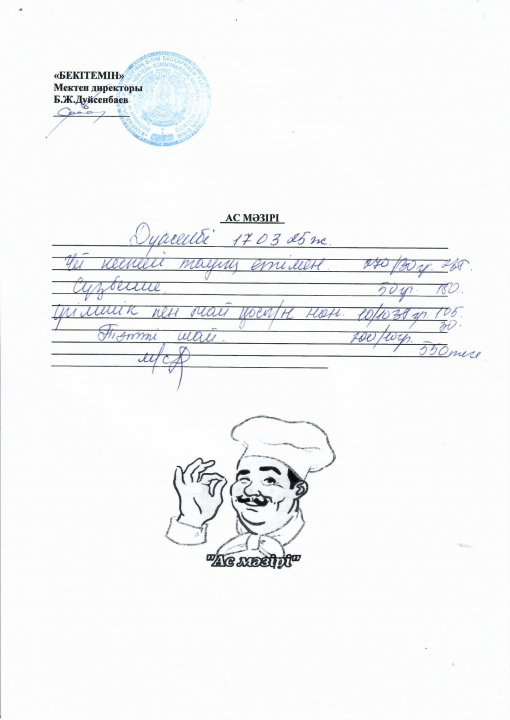 «БЕКІТЕМІН»
Мектеп директоры
Б.Ж.Дуйсенбаев
АС МӘЗІРІ
Дүйсенбі 17 03 25ж.
Үй кеспей тауық етімен. 270/30гр.
Сүзбеше 50гр. 180.
Ірімшік пен май қосылған нан. 105
Тәтті шай. 200/10гр. 30.
550теңге
м/с
"Ас мәзірі"